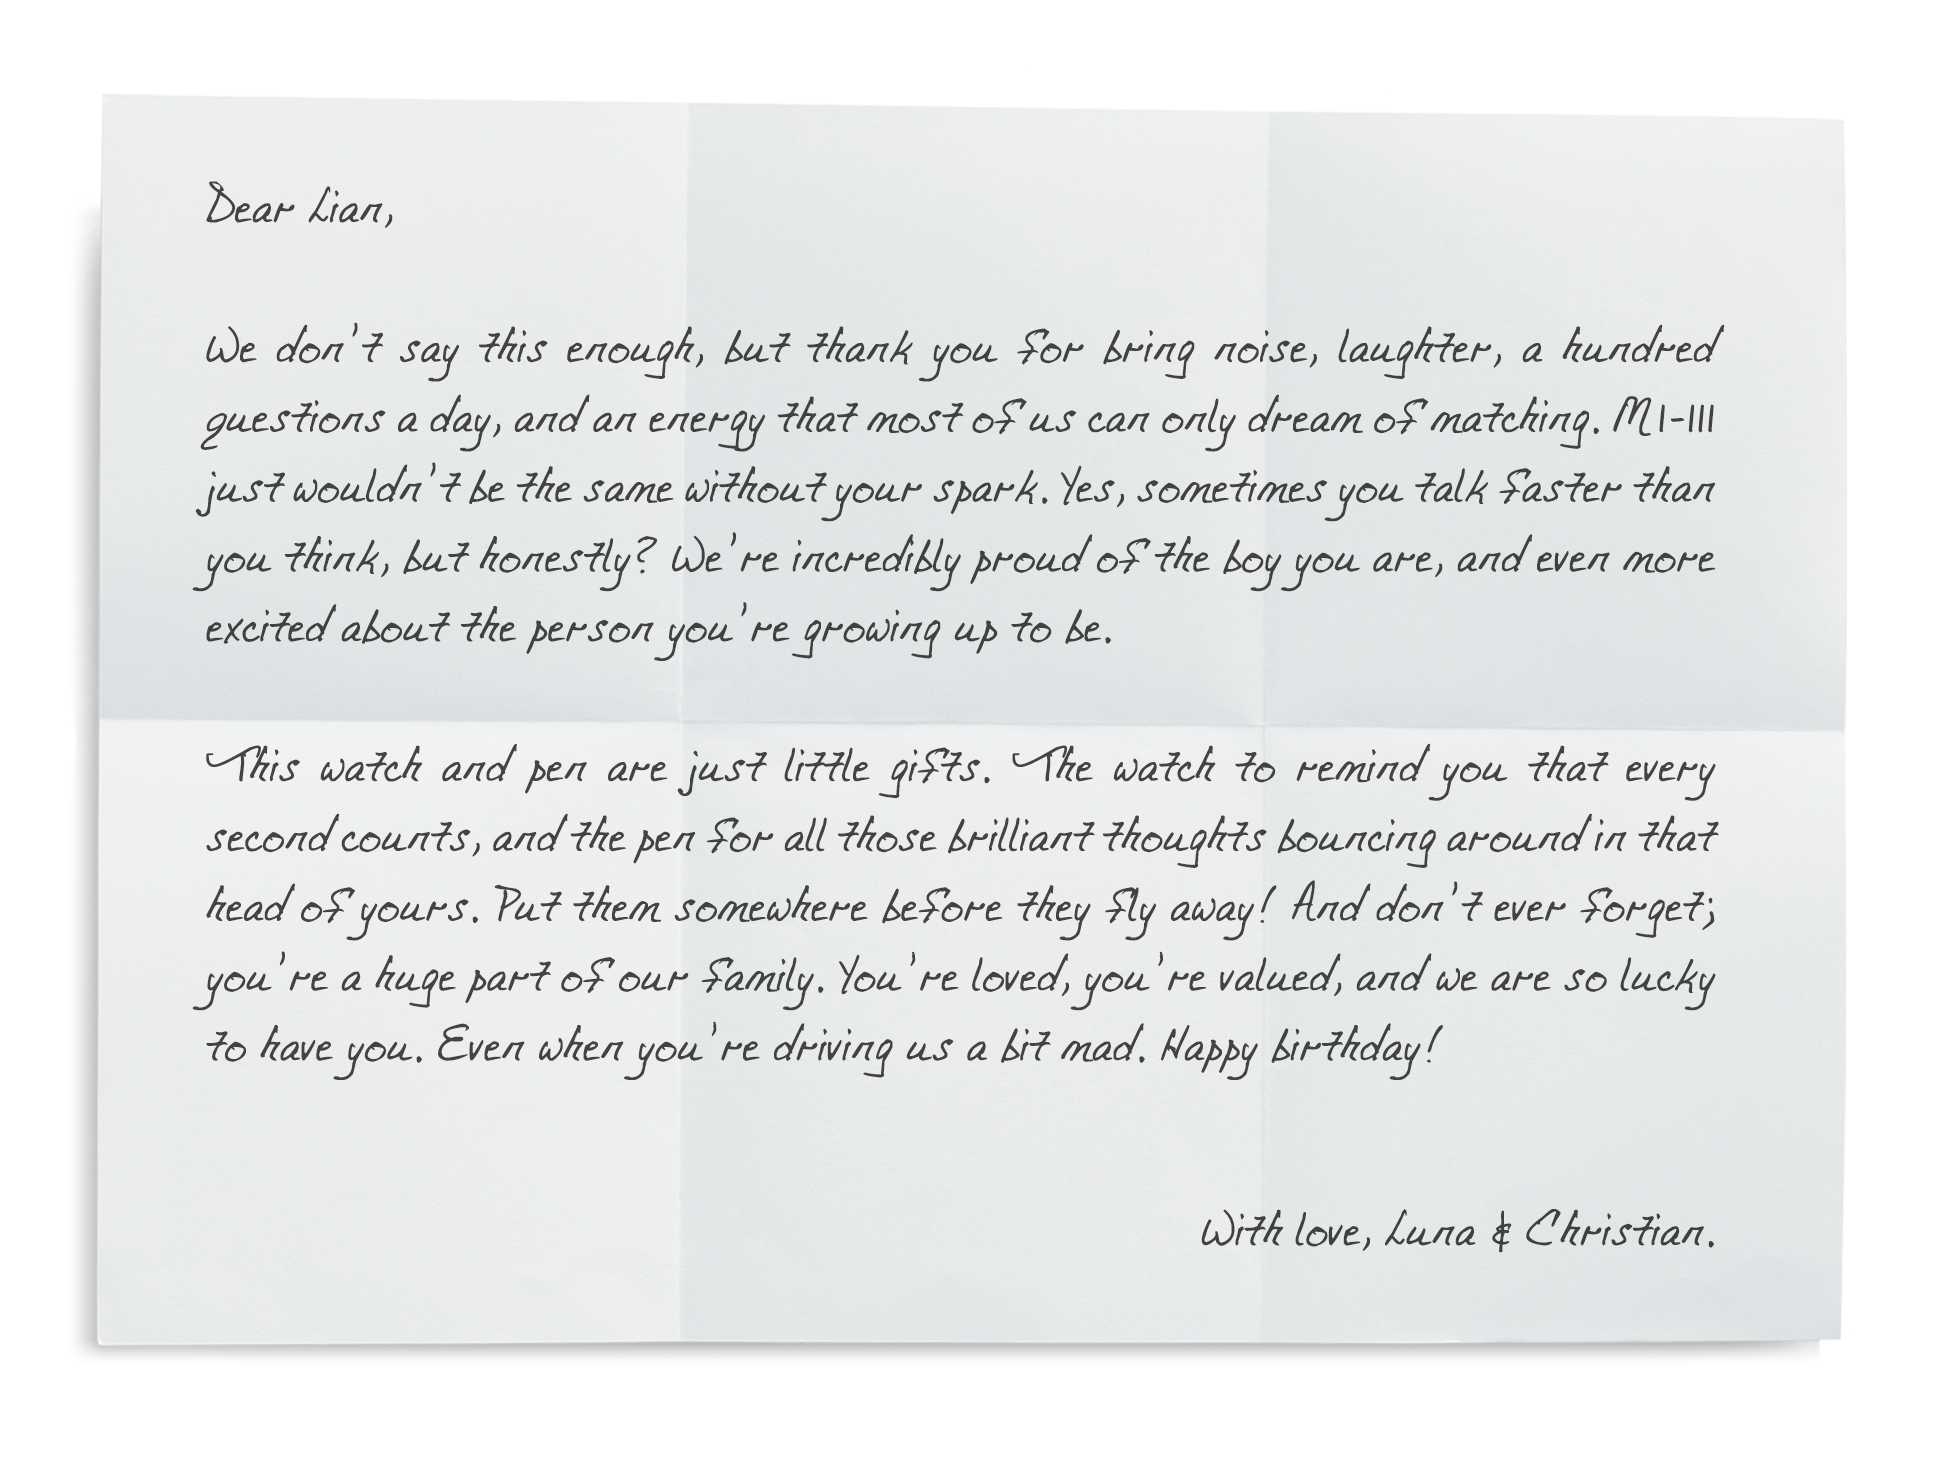 Dear Lian,
We don't say this enough, but thank you for bring noise, laughter, a hundred
questions a day, and an energy that most of us can only dream of matching. M1-111
just wouldn't be the same without your spark. Yes, sometimes you talk faster than
you think, but honestly? We're incredibly proud of the boy you are, and even more
excited about the person you're growing up to be.
This watch and pen are just little gifts. The watch to remind you that every
second counts, and the pen for all those brilliant thoughts bouncing around in that
head of yours. Put them somewhere before they fly away! And don't ever forget;
you're a huge part of our family. You're loved, you're valued, and we are so lucky
to have you. Even when you're driving us a bit mad. Happy birthday!
With love, Luna & Christian.